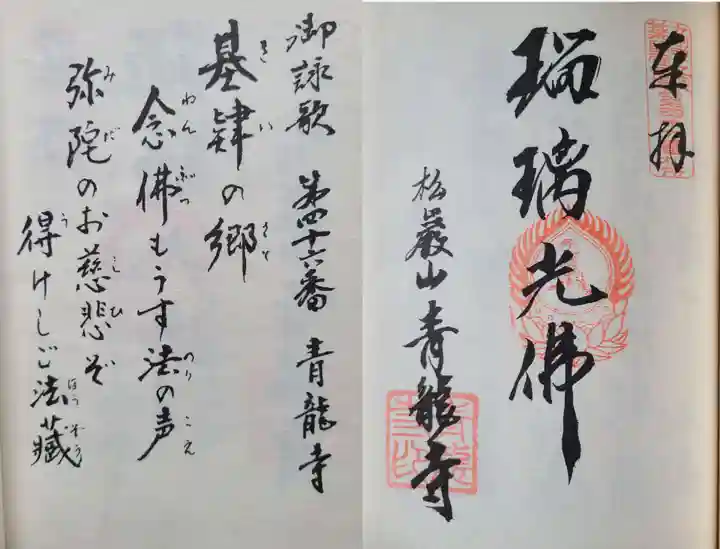 奉拝
瑠璃光佛
松巖山青龍寺
御詠歌 第四十六番 青龍寺
基肄の郷
き い さと
念佛もうす法の声
ねん ぶつ のり こえ
弥陀のお慈悲ぞ
み だ じ ひ
得けしご法蔵
う ほう ぞう